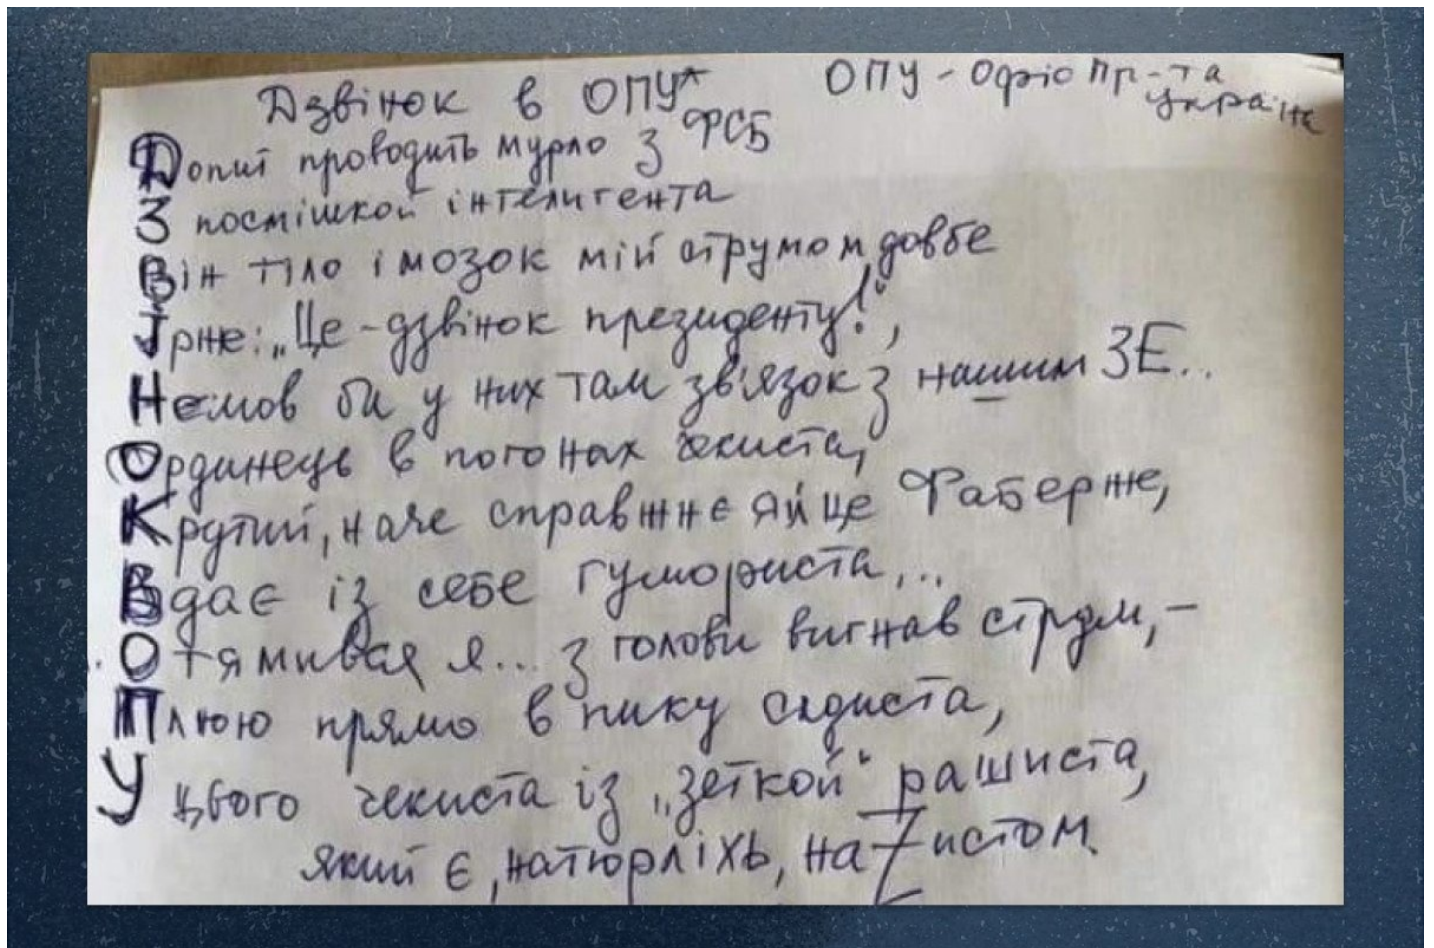 Дзвінок в ОПУ*
ОПУ - Офіс Пр-та
Україна
Допит проводить мурло з ФСБ
З посмішкой інтелигента
Він тіло і мозок мій струмом довбе
Ірже: „Це - дзвінок президенту!",
Немов би у них там зв'язок з нашим ЗЕ...
Ординець в погонах чекиста,
Крутий, наче справжнє яйце Фаберже,
Вдає із себе гумориста...
Отямився я... з голови вигнав струм, -
Плюю прямо в пику садиста,
У цього чекиста із „зеткой" рашиста,
який є, натюрліхь, наZистом.